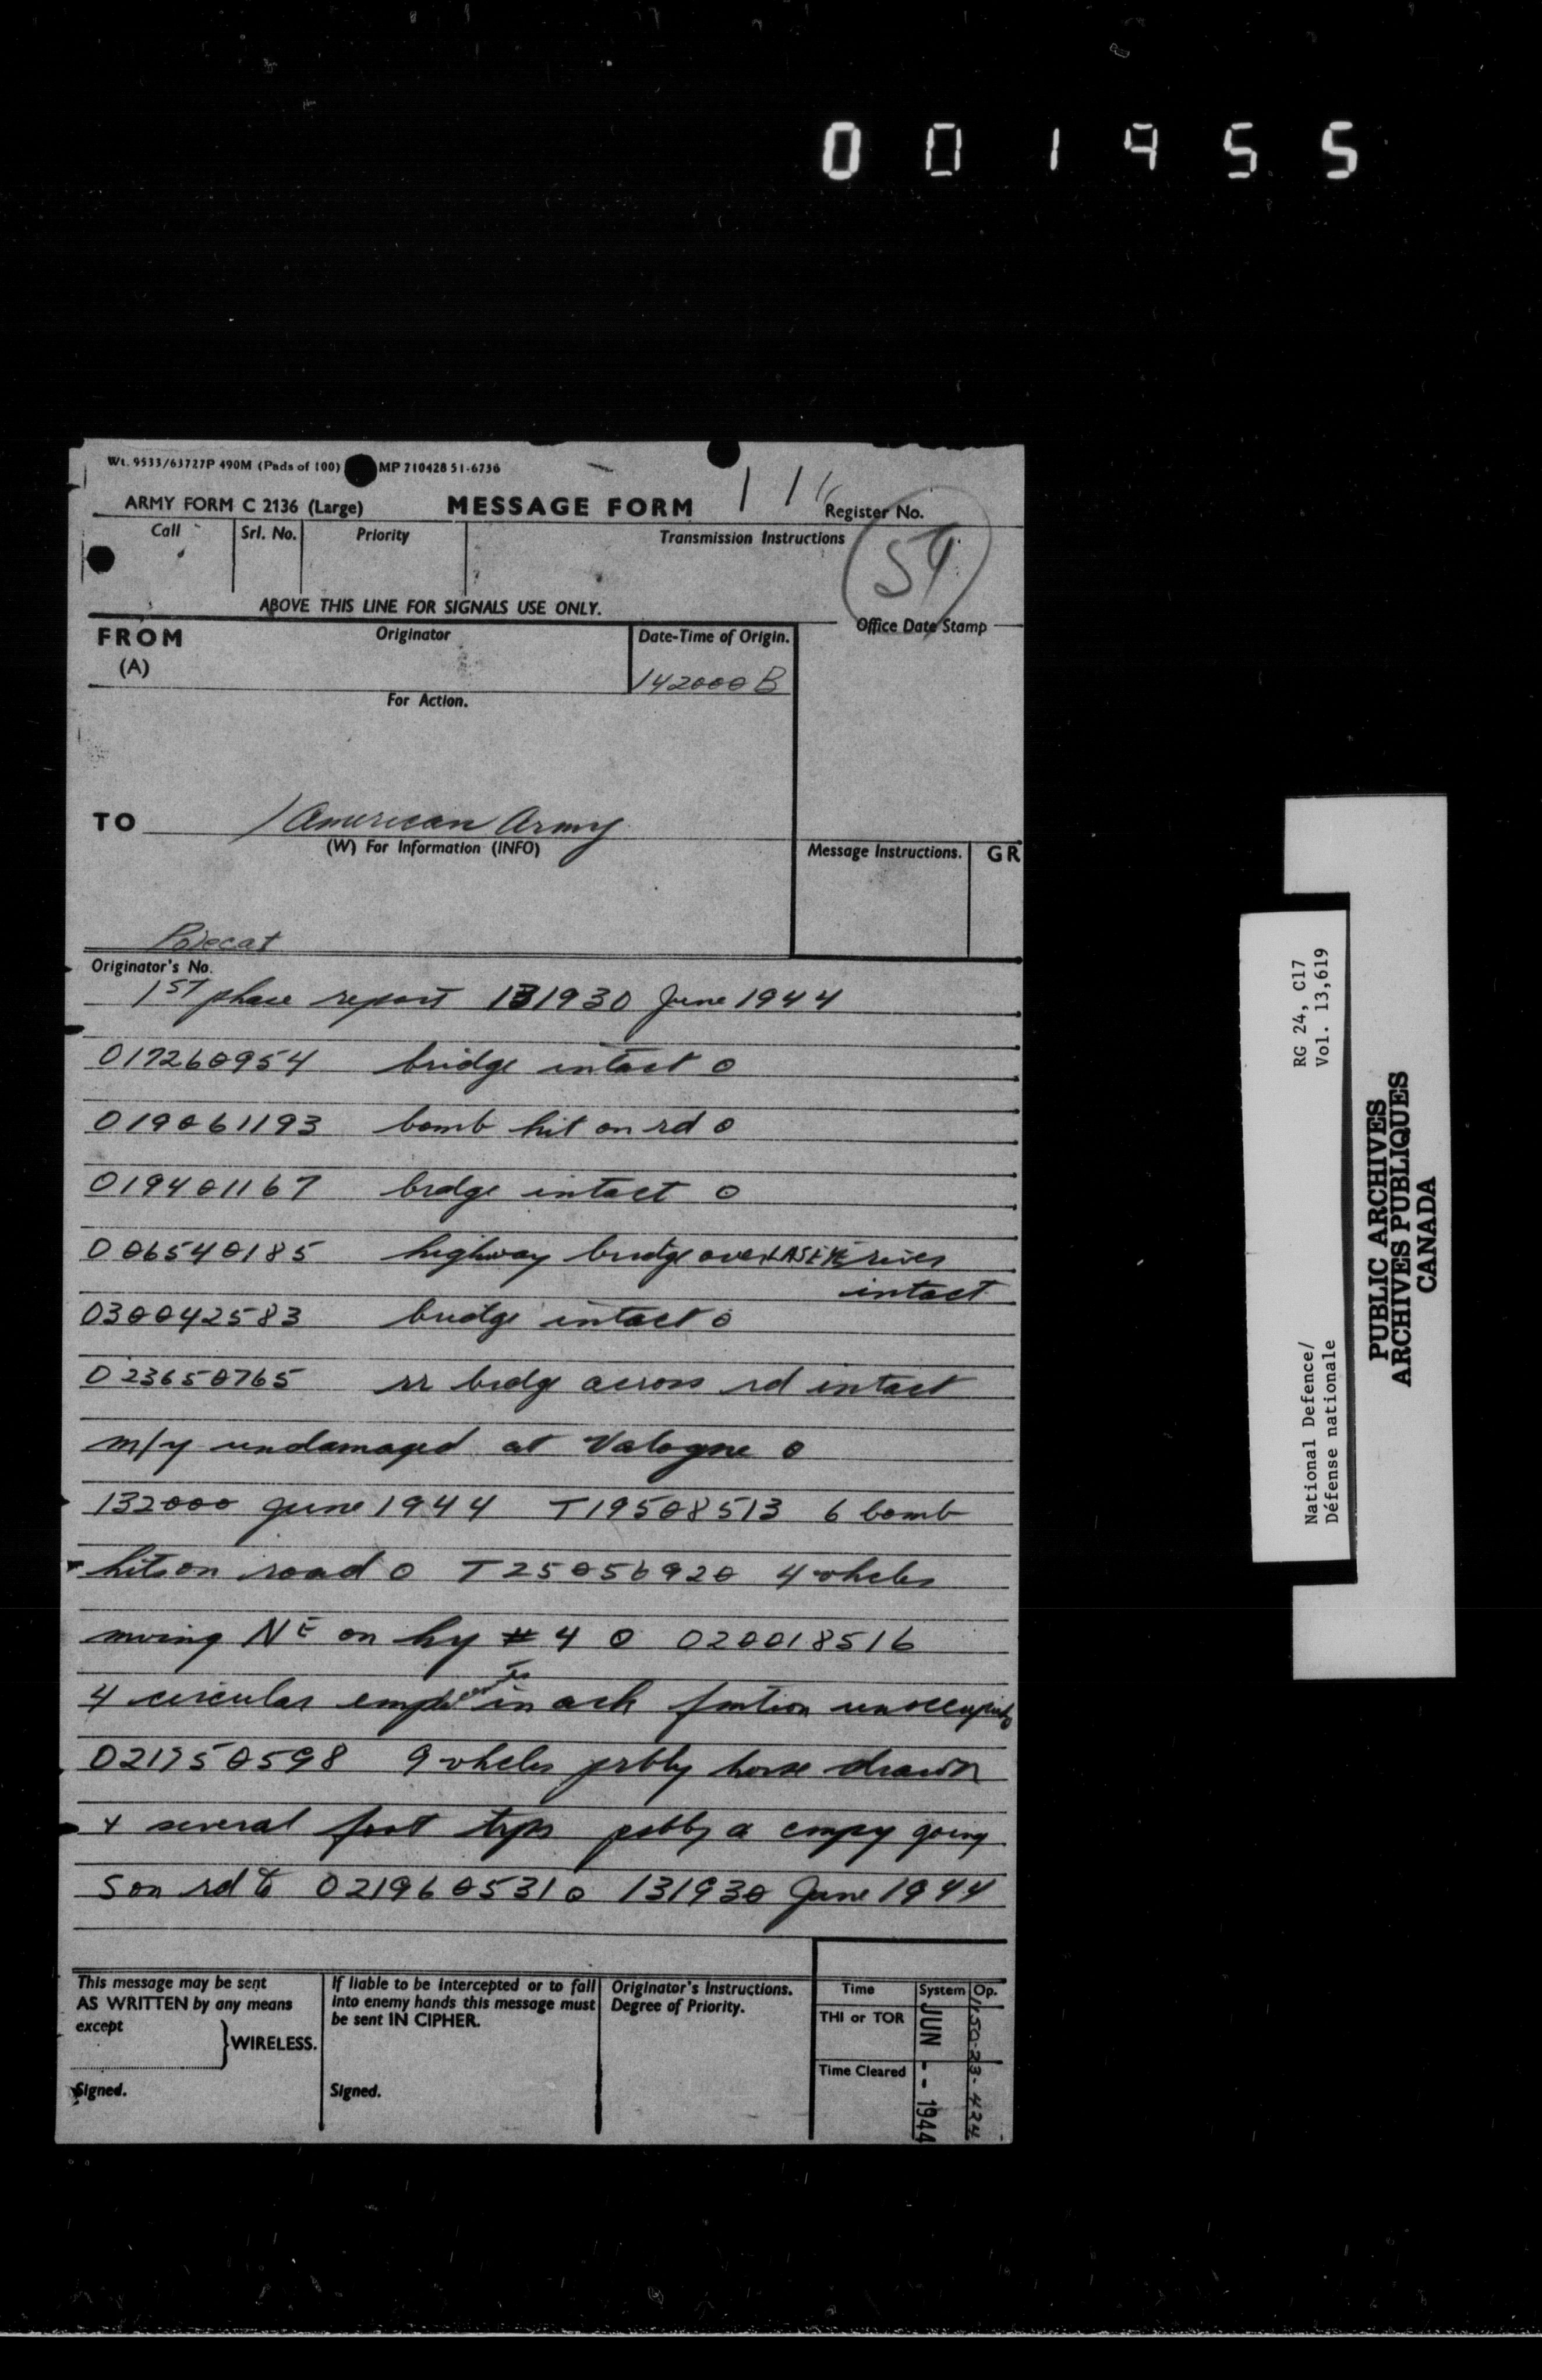 001955
Wt. 9533/63727P 490M (Pads of 100) MP 710428 51-6736
ARMY FORM C 2136 (Large) MESSAGE FORM Register No.
Call Srl. No. Priority Transmission Instructions
54
ABOVE THIS LINE FOR SIGNALS USE ONLY.
FROM Originator Date-Time of Origin. Office Date Stamp
(A)
142000B
For Action.
TO 1 American Army
(W) For Information (INFO) Message Instructions. GR
Polecat
Originator's No.
1ST phase report 131930 June 1944
017260954 bridge intact 0
019061193 bomb hit on rd 0
019401167 brdge intact 0
006540185 highway bridge over river
intact
030042583 bridge intact 0
023650765 rr brdge across rd intact
m/y undamaged at Valogne 0
132000 June 1944 T19508513 6 bomb
hits on road 0 T25056920 4 vhcles
moving NE on hy #4 0 020018516
4 circular in unoccupied
021750598 9 vhcles prbly horse drawn
+ several foot trps pobbly a cmpy going
S on rd to 021960531 0 131930 June 1944
This message may be sent
AS WRITTEN by any means
except
} WIRELESS.
Signed.
If liable to be intercepted or to fall
into enemy hands this message must
be sent IN CIPHER.
Signed.
Originator's Instructions.
Degree of Priority.
Time System Op.
THI or TOR
Time Cleared
JUN -- 1944
RG 24, C17
Vol. 13,619
National Defence/
Défense nationale
PUBLIC ARCHIVES
ARCHIVES PUBLIQUES
CANADA